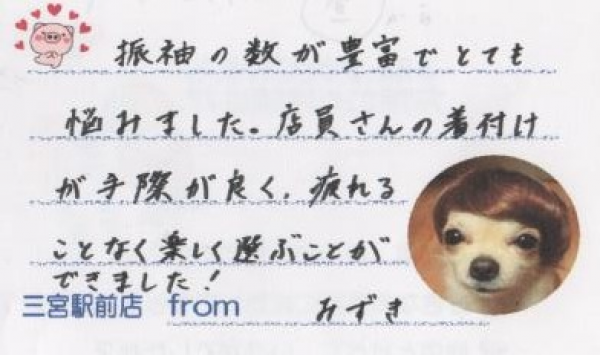 振袖の数が豊富でとても
悩みました。店員さんの着付け
が手際が良く、疲れる
ことなく楽しく選ぶことが
できました!
三宮駅前店 from みずき